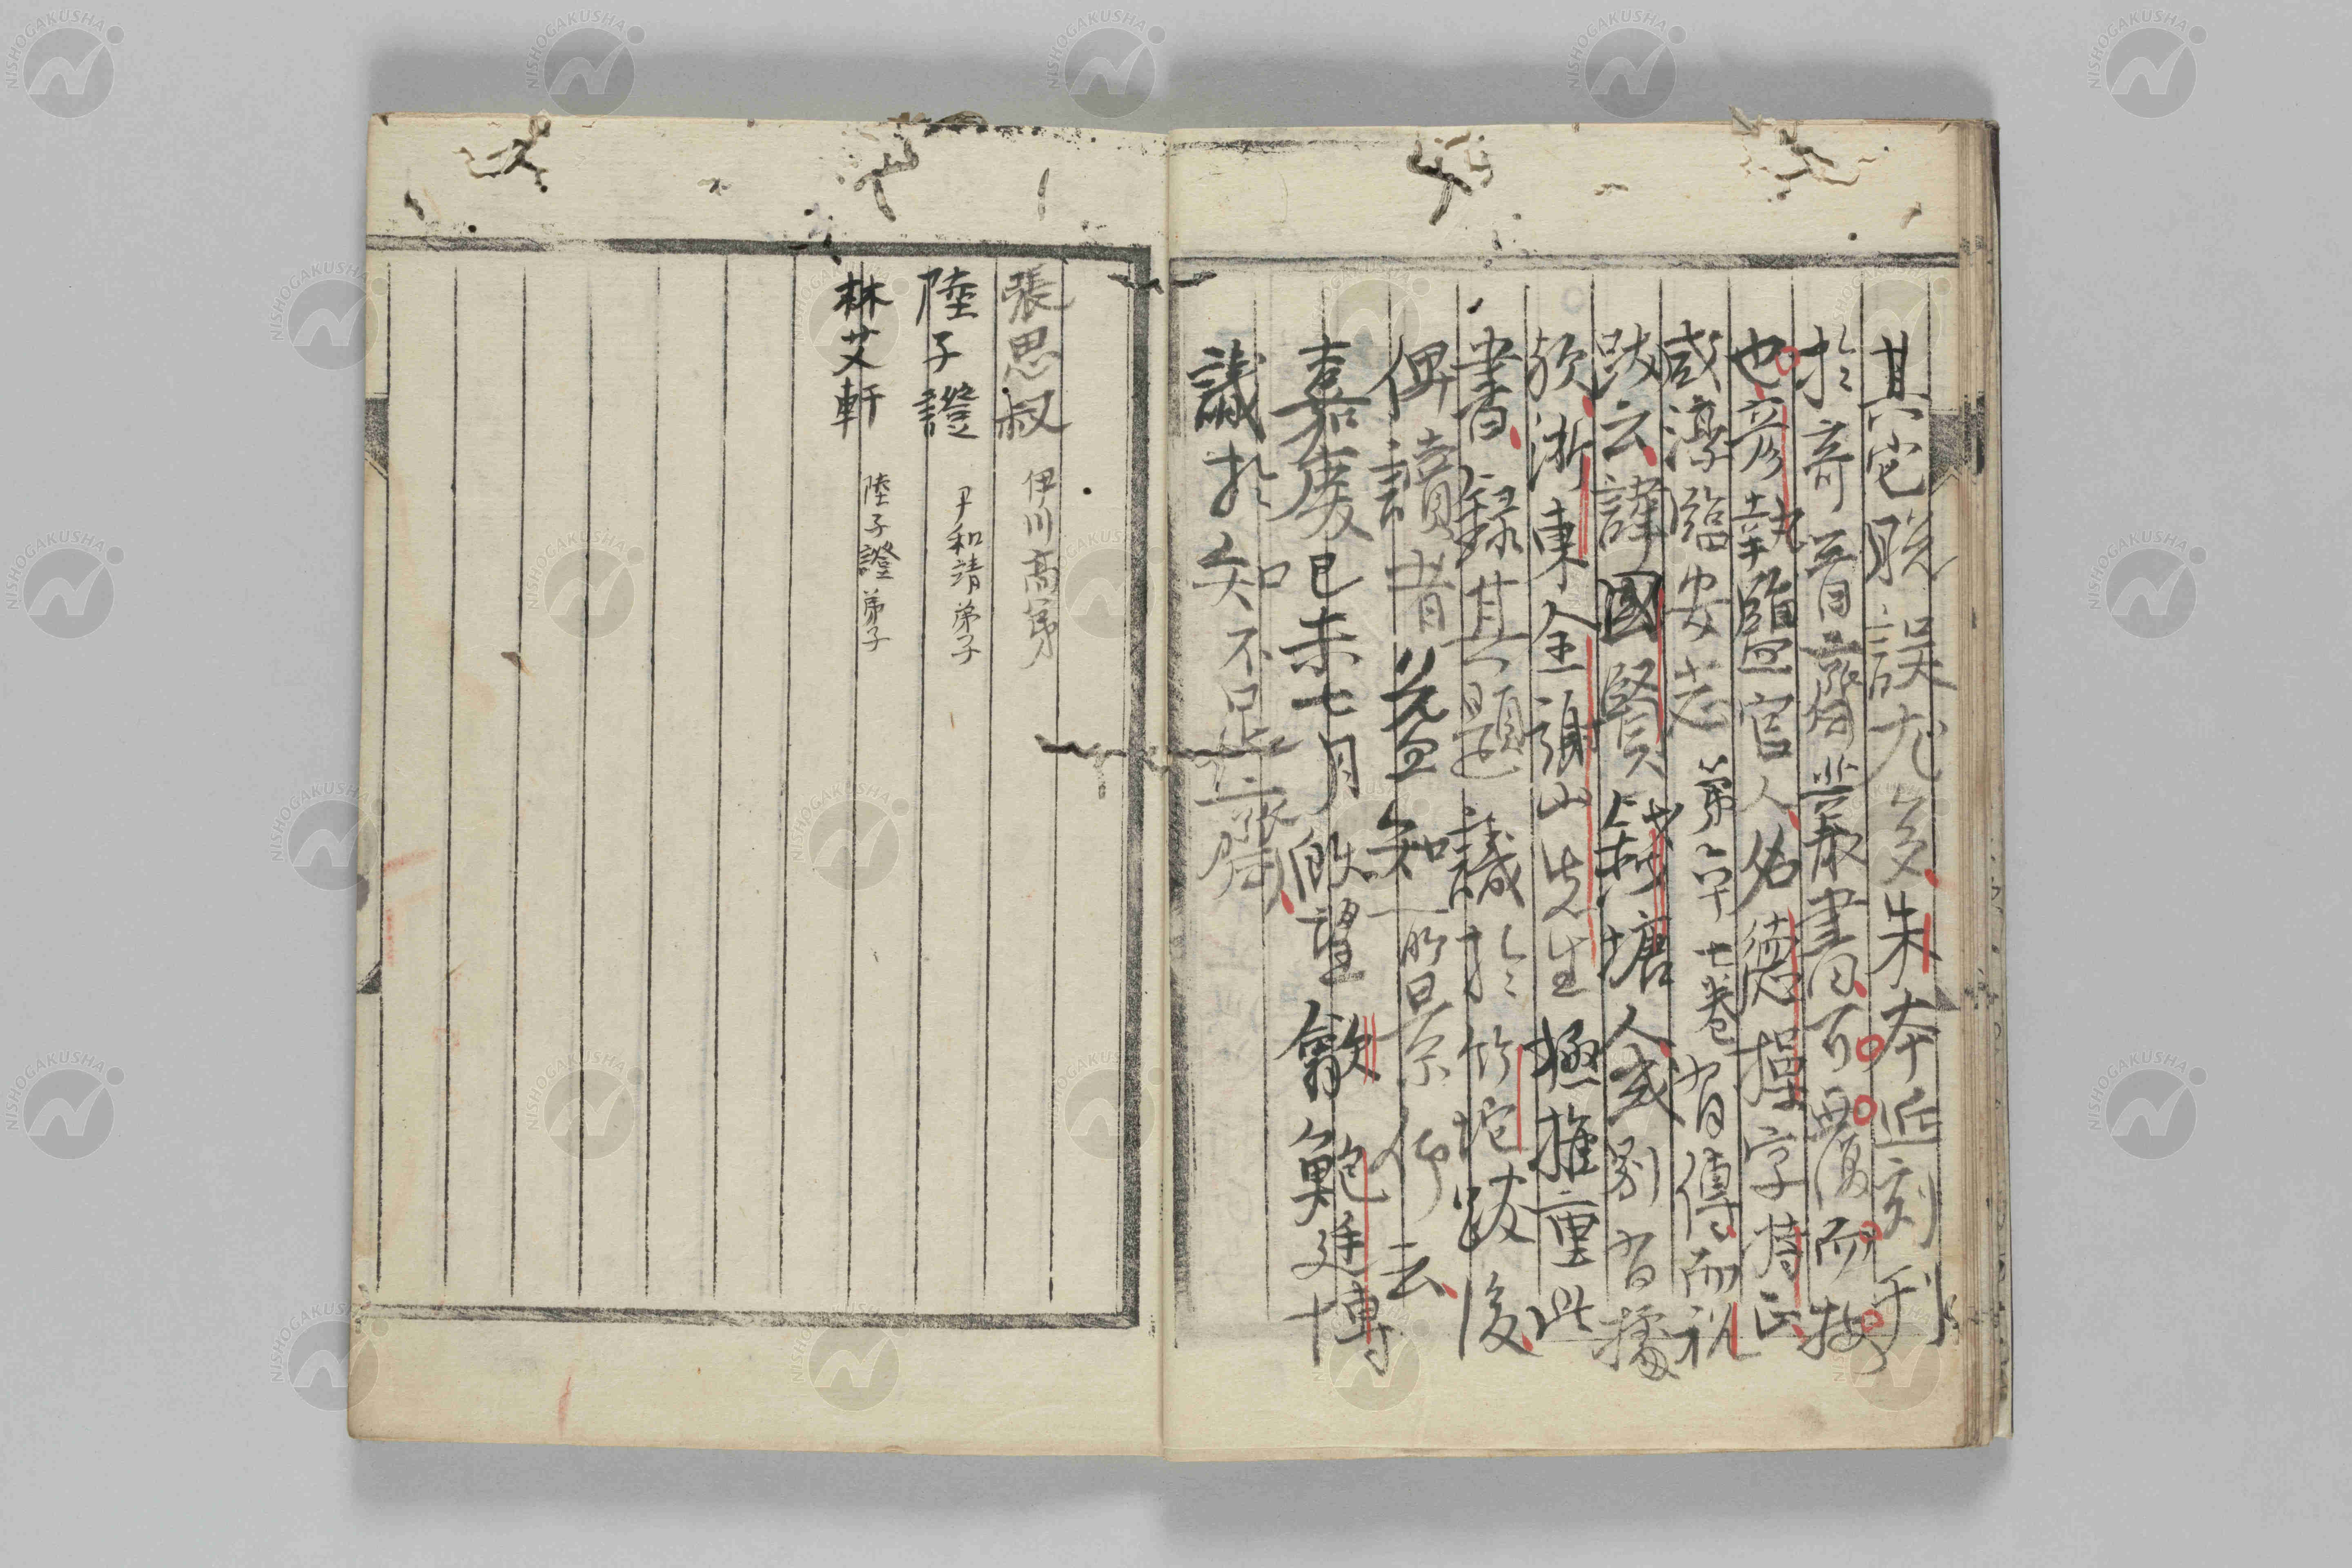 其它脱誤尤多朱本近刻刊
於奇晋齋叢書可覆而按
也彦執鹽官人名德操字持正
咸淳臨安志第六十七卷有傳而祝
跋云諱國賢錢塘人或別有據
歟浙東全謝山先生極推重此
書録其題識於竹垞跋後
俾讀者益知所景仰云
嘉慶已未七月既望歙鮑廷博
識於知不足齋
張思叔 伊川高弟
陸子證 尹和靖弟子
林艾軒 陸子證弟子
NISHOGAKUSHA